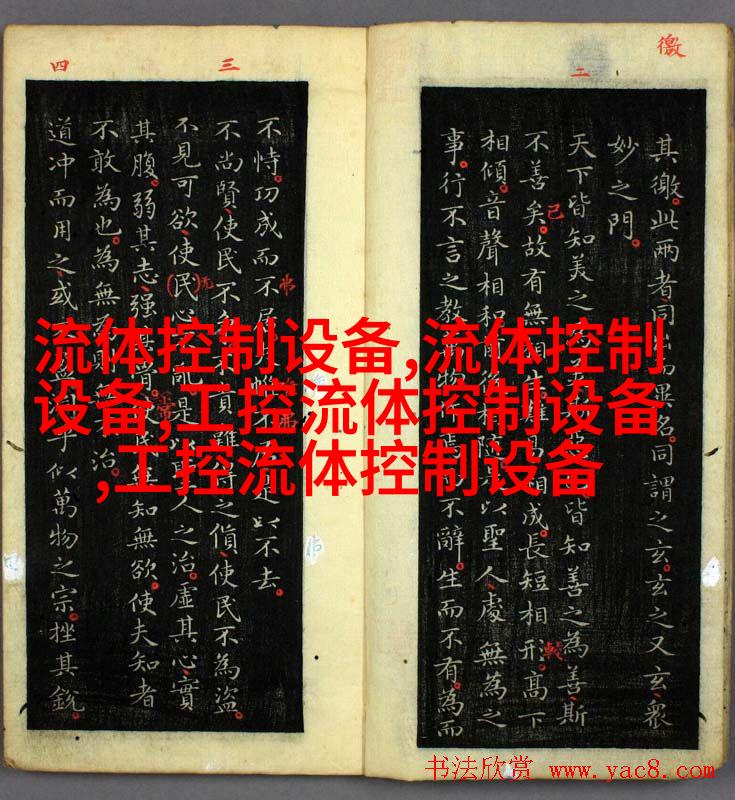 流体控制设备,流体控制
设备,工控流体控制设备
,工控流体控制设备
徼
二
其徼。此两者同出而異名。同謂之玄。玄之又玄。衆
妙之門。
天下皆知美之 皆知善之為善斯
不善矣。故有無相 易相成。長短相形。高下
相傾。音聲相和 相随 以聖人處無為之
事。行不言之教 物 不辭。生而不有。為而
已
三
四
不恃。功成而不居 不去。
不尚賢。使民不 貴難 之貨。使民不為盜。
不見可欲。使民心 是以聖人之治。虛其心。實
其腹。弱其志。强其 民無知無欲。使夫知者
不敢為也。為無 治。
道冲而用之。或 乎似萬物之宗。挫其銳。
书法欣赏 www.yac8.com